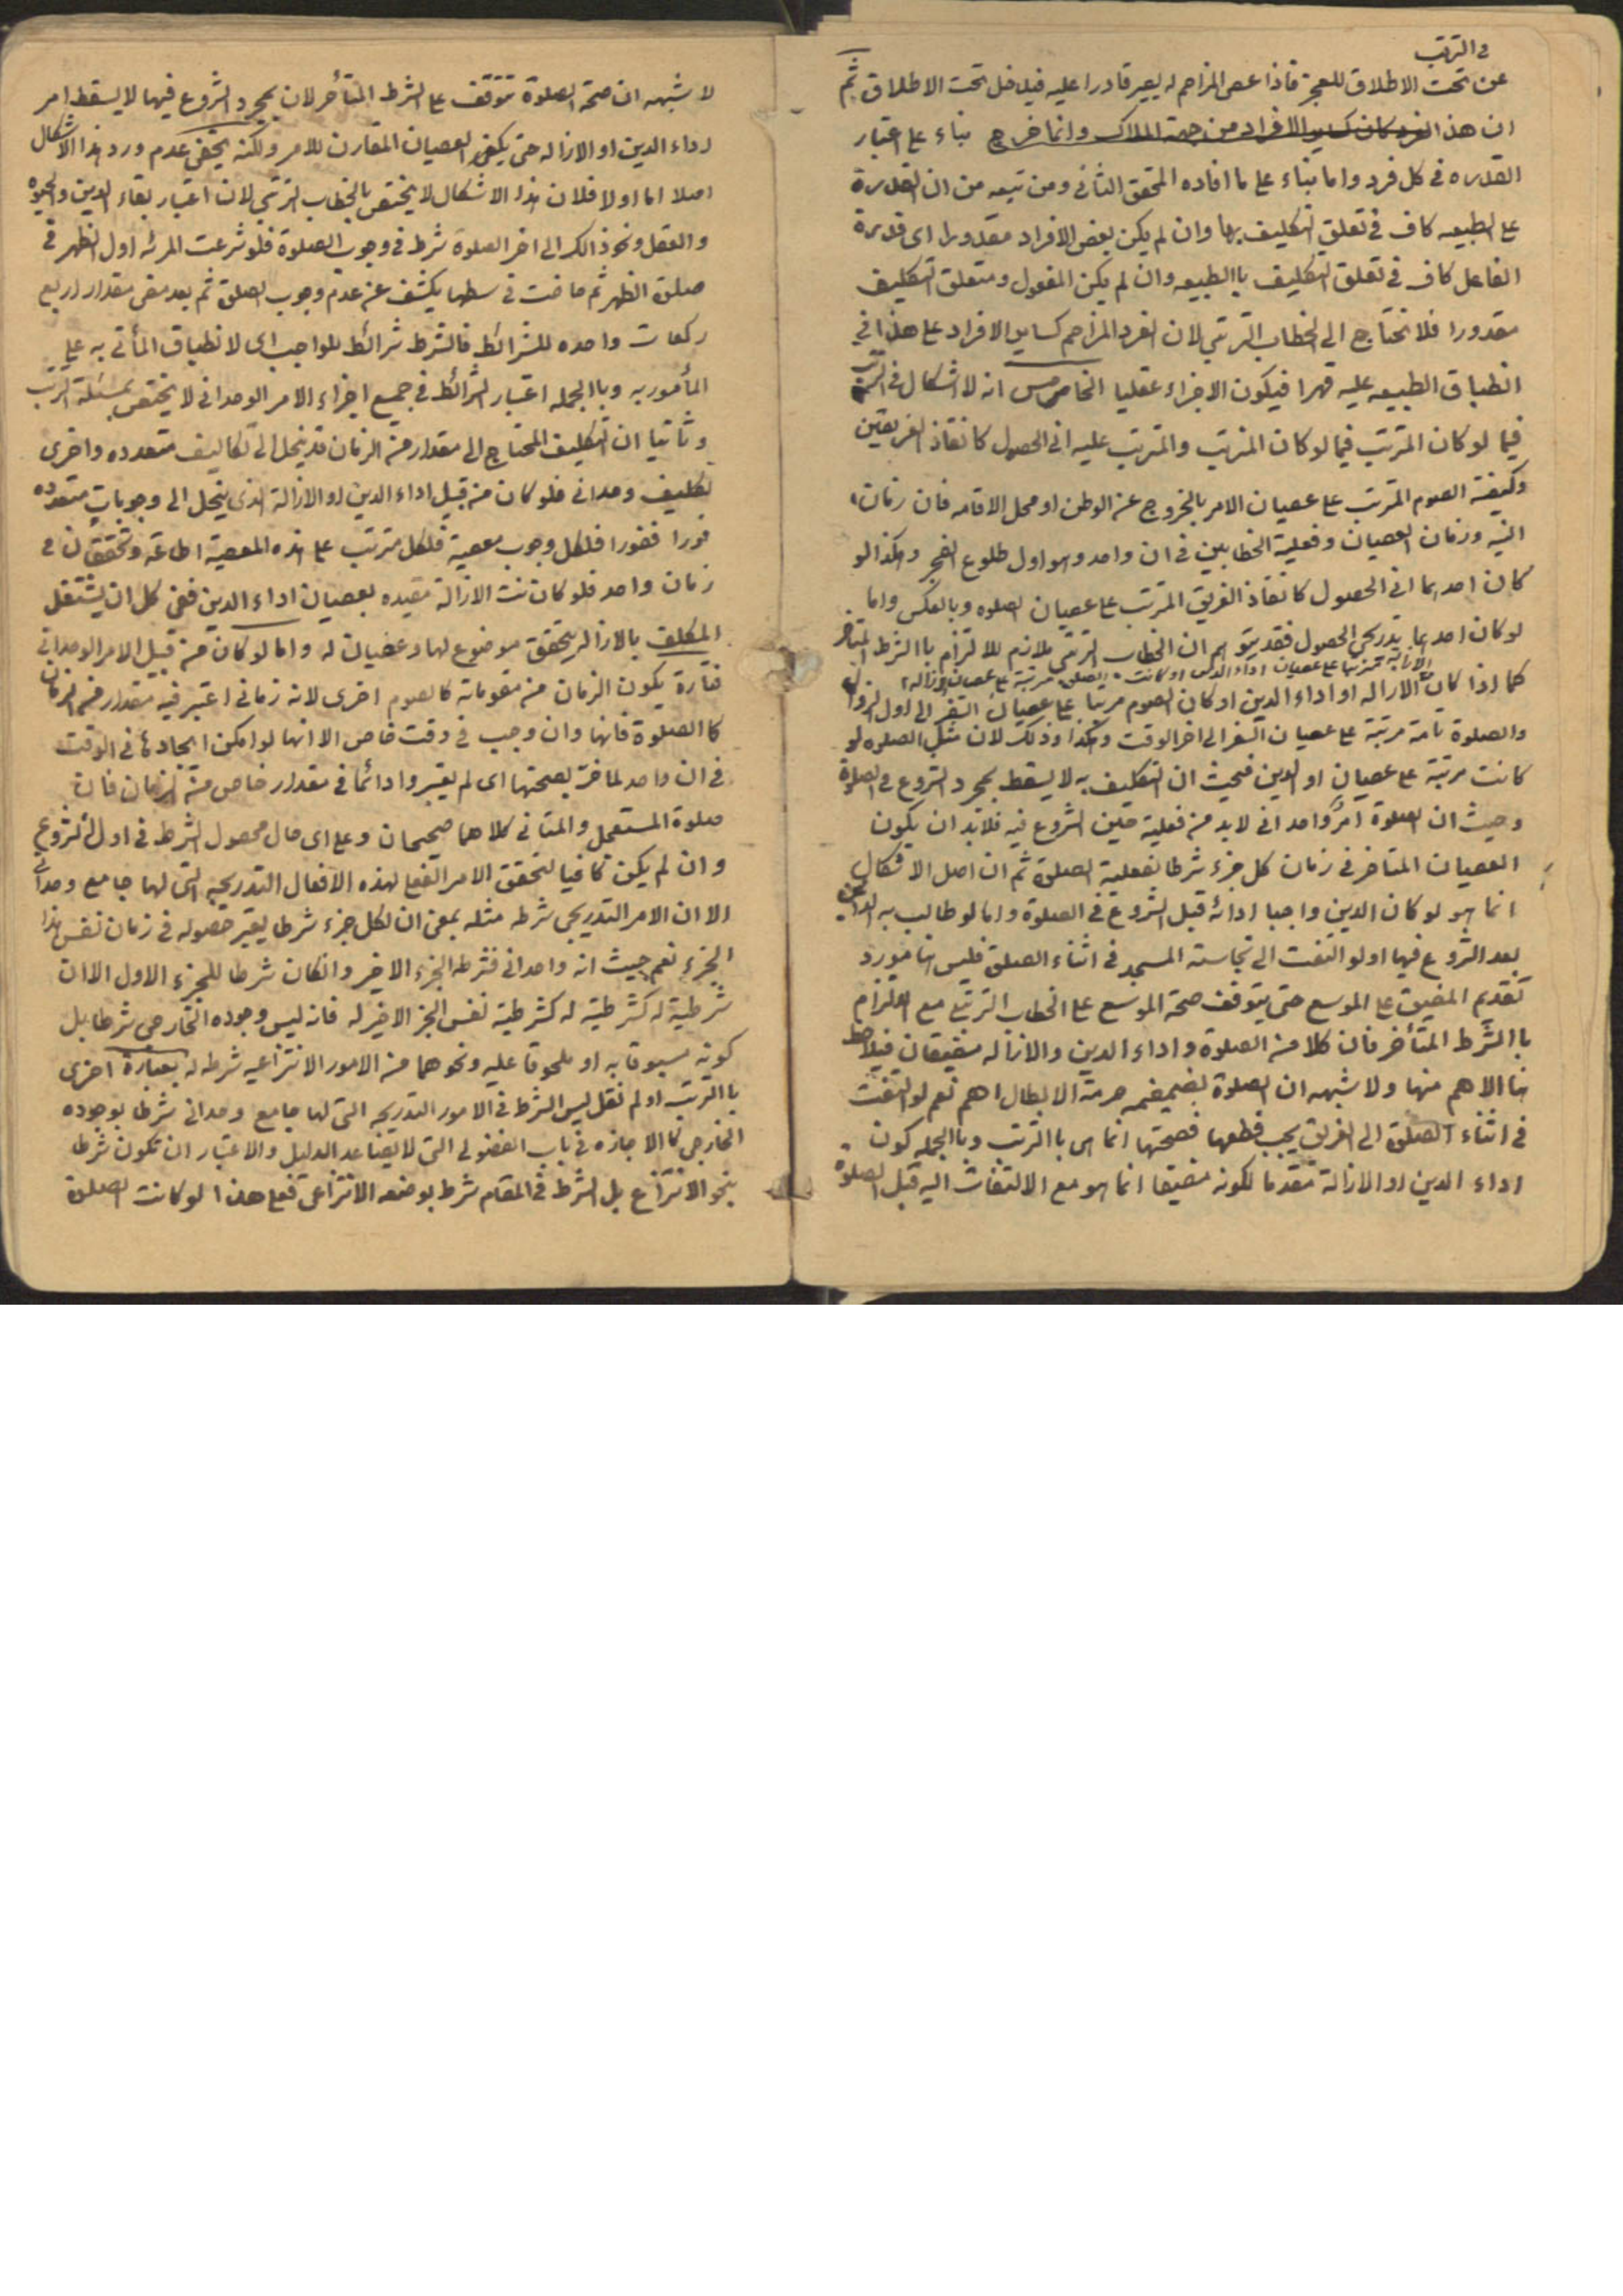 في الترتب
عن تحت الاطلاق للعجز فاذا عصى المزاحم له يصير قادرا عليه فيدخل تحت الاطلاق ثم
ان هذا الفرد كان كساير الافراد من جهة الملاك وانما خرج بناء على اعتبار
القدره في كل فرد واما بناء على ما افاده المحقق الثاني ومن تبعه من ان القدرة
على الطبيعه كاف في تعلق التكليف بها وان لم يكن بعض الافراد مقدورا اى قدرة
الفاعل كاف في تعلق التكليف باالطبيعه وان لم يكن المفعول ومتعلق التكليف
مقدورا فلا نحتاج الى الخطاب الترتبي لان الفرد المزاحم كساير الافراد على هذا في
انطباق الطبيعه عليه قهرا فيكون الاجزاء عقليا الخامس انه لا اشكال في الترتب
فيما لو كان المترتب فيما لو كان المترتب والمترتب عليه انى الحصول كانقاذ الغريقين
وكيفية الصوم المترتب على عصيان الامر بالخروج عن الوطن او محل الاقامه فان زمان
النيه وزمان العصيان وفعلية الخطابين في ان واحد وهو اول طلوع الفجر وهكذا لو
كان احدهما انى الحصول كانقاذ الغريق المترتب على عصيان الصلوه وبالعكس واما
لو كان احدهما تدريجي الحصول فقد يتوهم ان الخطاب الترتبي ملازم للالتزام باالشرط المتأخر
الازاله مترتبا على عصيان اداء الدين او كانت الصلوة مرتبة على عصيان الازاله
كما اذا كان الازاله او اداء الدين او كان الصوم مرتبا على عصيان السفر الى اول الزوال
والصلوة تامة مرتبة على عصيان السفر الى اخر الوقت وهكذا وذلك لان مثل الصلوه لو
كانت مرتبة على عصيان او الدين فحيث ان التكليف به لا يسقط بمجرد الشروع في الصلوة
وحيث ان الصلوة امر واحداني لابد من فعلية حين الشروع فيه فلابد ان يكون
العصيان المتاخر في زمان كل جزء شرطا لفعلية الصلوة ثم ان اصل الاشكال
انما هو لو كان الدين واجبا ادائه قبل الشروع في الصلوة واما لو طالب به الدائن
بعد الشروع فيها او لو التفت الى نجاسة المسجد في اثناء الصلوة فليس هنا مورد
تقديم المضيق على الموسع حتى يتوقف صحة الموسع على الخطاب الترتبي مع التزام
باالشرط المتأخر فان كلا من الصلوة واداء الدين والازاله مضيقان فيلاحظ
هنا الاهم منها ولا شبهه ان الصلوة بضميمه حرمة الابطال اهم نعم لو التفت
في اثناء الصلوة الى الغريق يجب قطعها فصحتها انما هى باالترتب وباالجمله كون
اداء الدين او الازالة مقدما لكونه مضيقا انما هو مع الالتفات اليه قبل الصلوة
لا شبهه ان صحة الصلوة تتوقف على الشرط المتأخر لان بمجرد الشروع فيها لا يسقط امر
اداء الدين او الازاله حتى يكفى العصيان المقارن للامر ولكنه يخفى عدم ورد هذا الاشكال
اصلا اما اولا فلان هذا الاشكال لا يختص بالخطاب الترتبي لان اعتبار بقاء الدين والحيوة
والعقل ونحو ذالك الى اخر الصلوة شرط في وجوب الصلوة فلو شرعت المرئه اول الظهر في
صلوة الظهر ثم حاضت في وسطها يكشف عن عدم وجوب الصلوة ثم بعد مضى مقدار اربع
ركعات واحده للشرائط فالشرط شرائط للواجب اى لانطباق المأتي به على
المأمور به وباالجمله اعتبار الشرائط في جميع اجزاء الامر الوحداني لا يختص بمسئلة الترتب
وثانيا ان التكليف المحتاج الى مقدار من الزمان قد ينحل الى تكاليف متعدده واخرى
تكليف وحداني فلو كان من قبيل اداء الدين او الازالة الذى ينحل الى وجوبات متعدده
فورا ففورا فلكل وجوب معصية فلكل مترتب على هذه المعصية اطاعة وتحققان في
زمان واحد فلو كانت الازالة مقيده بعصيان اداء الدين ففى كل ان يشتغل
المكلف بالازاله يتحقق موضوع لها وعصيان له واما لو كان من قبيل الامر الوحداني
فتارة يكون الزمان من مقوماته كالصوم اخرى لانه زماني اعتبر فيه مقدار من الزمان
كاالصلوة فانها وان وجب في وقت خاص الا انها لو امكن ايجادها في الوقت
في ان واحد لما ضر بصحتها اى لم يعتبروا دائما في مقدار خاص من الزمان فان
صلوة المستعجل والمتاني كلاهما صحيحان وعلى اى حال محصول الشرط في اول الشروع
وان لم يكن كافيا لتحقق الامر الفعلي لهذه الافعال التدريجيه التى لها جامع وحداني
الا ان الامر التدريجي شرطه مثله بمعنى ان لكل جزء شرطا يعتبر حصوله في زمان نفس هذا
الجزء نعم حيث انه واحداني فشرطه الجزء الاخير وان كان شرطا للجزء الاول الا ان
شرطية له كشرطية له كشرطية نفس الجز الاخير له فانه ليس وجوده الخارجي شرطا بل
كونه مسبوقا به او ملحوقا عليه ونحوهما من الامور الانتزاعيه شرط له بعبارة اخرى
باالترتب او لم نقل ليس الشرط في الامور التدريجيه التى لها جامع وحداني شرطا بوجوده
الخارجي كالاجازه في باب الفضولي التى لا يضاعد الدليل والاعتبار ان تكون شرطا
بنحو الانتزاع بل الشرط في المقام شرط بوصفه الانتزاعي فعلى هذا لو كانت الصلوة